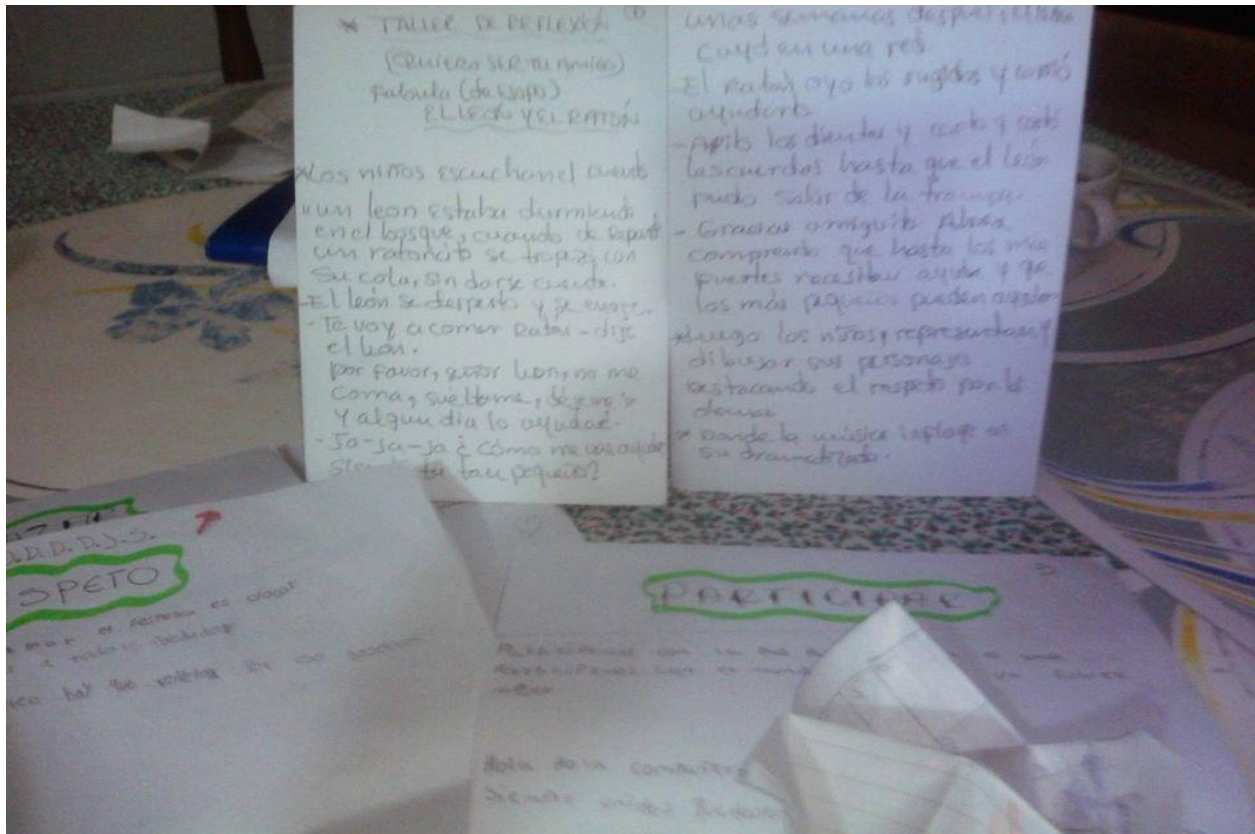 * TALLER DE REFLEXIÓN
(QUIERO SER TU AMIGO)
Fabula (de Esopo)
EL LEÓN Y EL RATÓN
*Los niños escuchan el cuento
"un leon estaba durmiendo
en el bosque, cuando de repente
un ratoncito se tropezó con
su cola, sin darse cuenta.
El león se desperto y se enojo.
- Te voy a comer Raton - dijo
el león.
por favor, señor león, no me
coma, suelteme, déjeme ir
y algun dia lo ayudaré.
- Ja-ja-ja ¿cómo me vas ayudar
siendo tú tan pequeño?
unas semanas después, el león
cayó en una red
El Raton oyo los rugidos y corrió
ayudarlo
- los dientes y corto y corto
las cuerdas hasta que el león
pudo salir de la trampa.
- Gracias amiguito Ahora
comprendo que hasta los más
fuertes necesitan ayuda y que
los más pequeños pueden ayudar
*Luego los niños, representan y
dibujan sus personajes
destacando el respeto por los
demas
* Donde la música influye en
su dramatizado.
D.D.D.J.S.
SPETO
el recreo es
hay que por
5
PARTICIPAR
con la
con el futuro
Hola
Siempre unidos